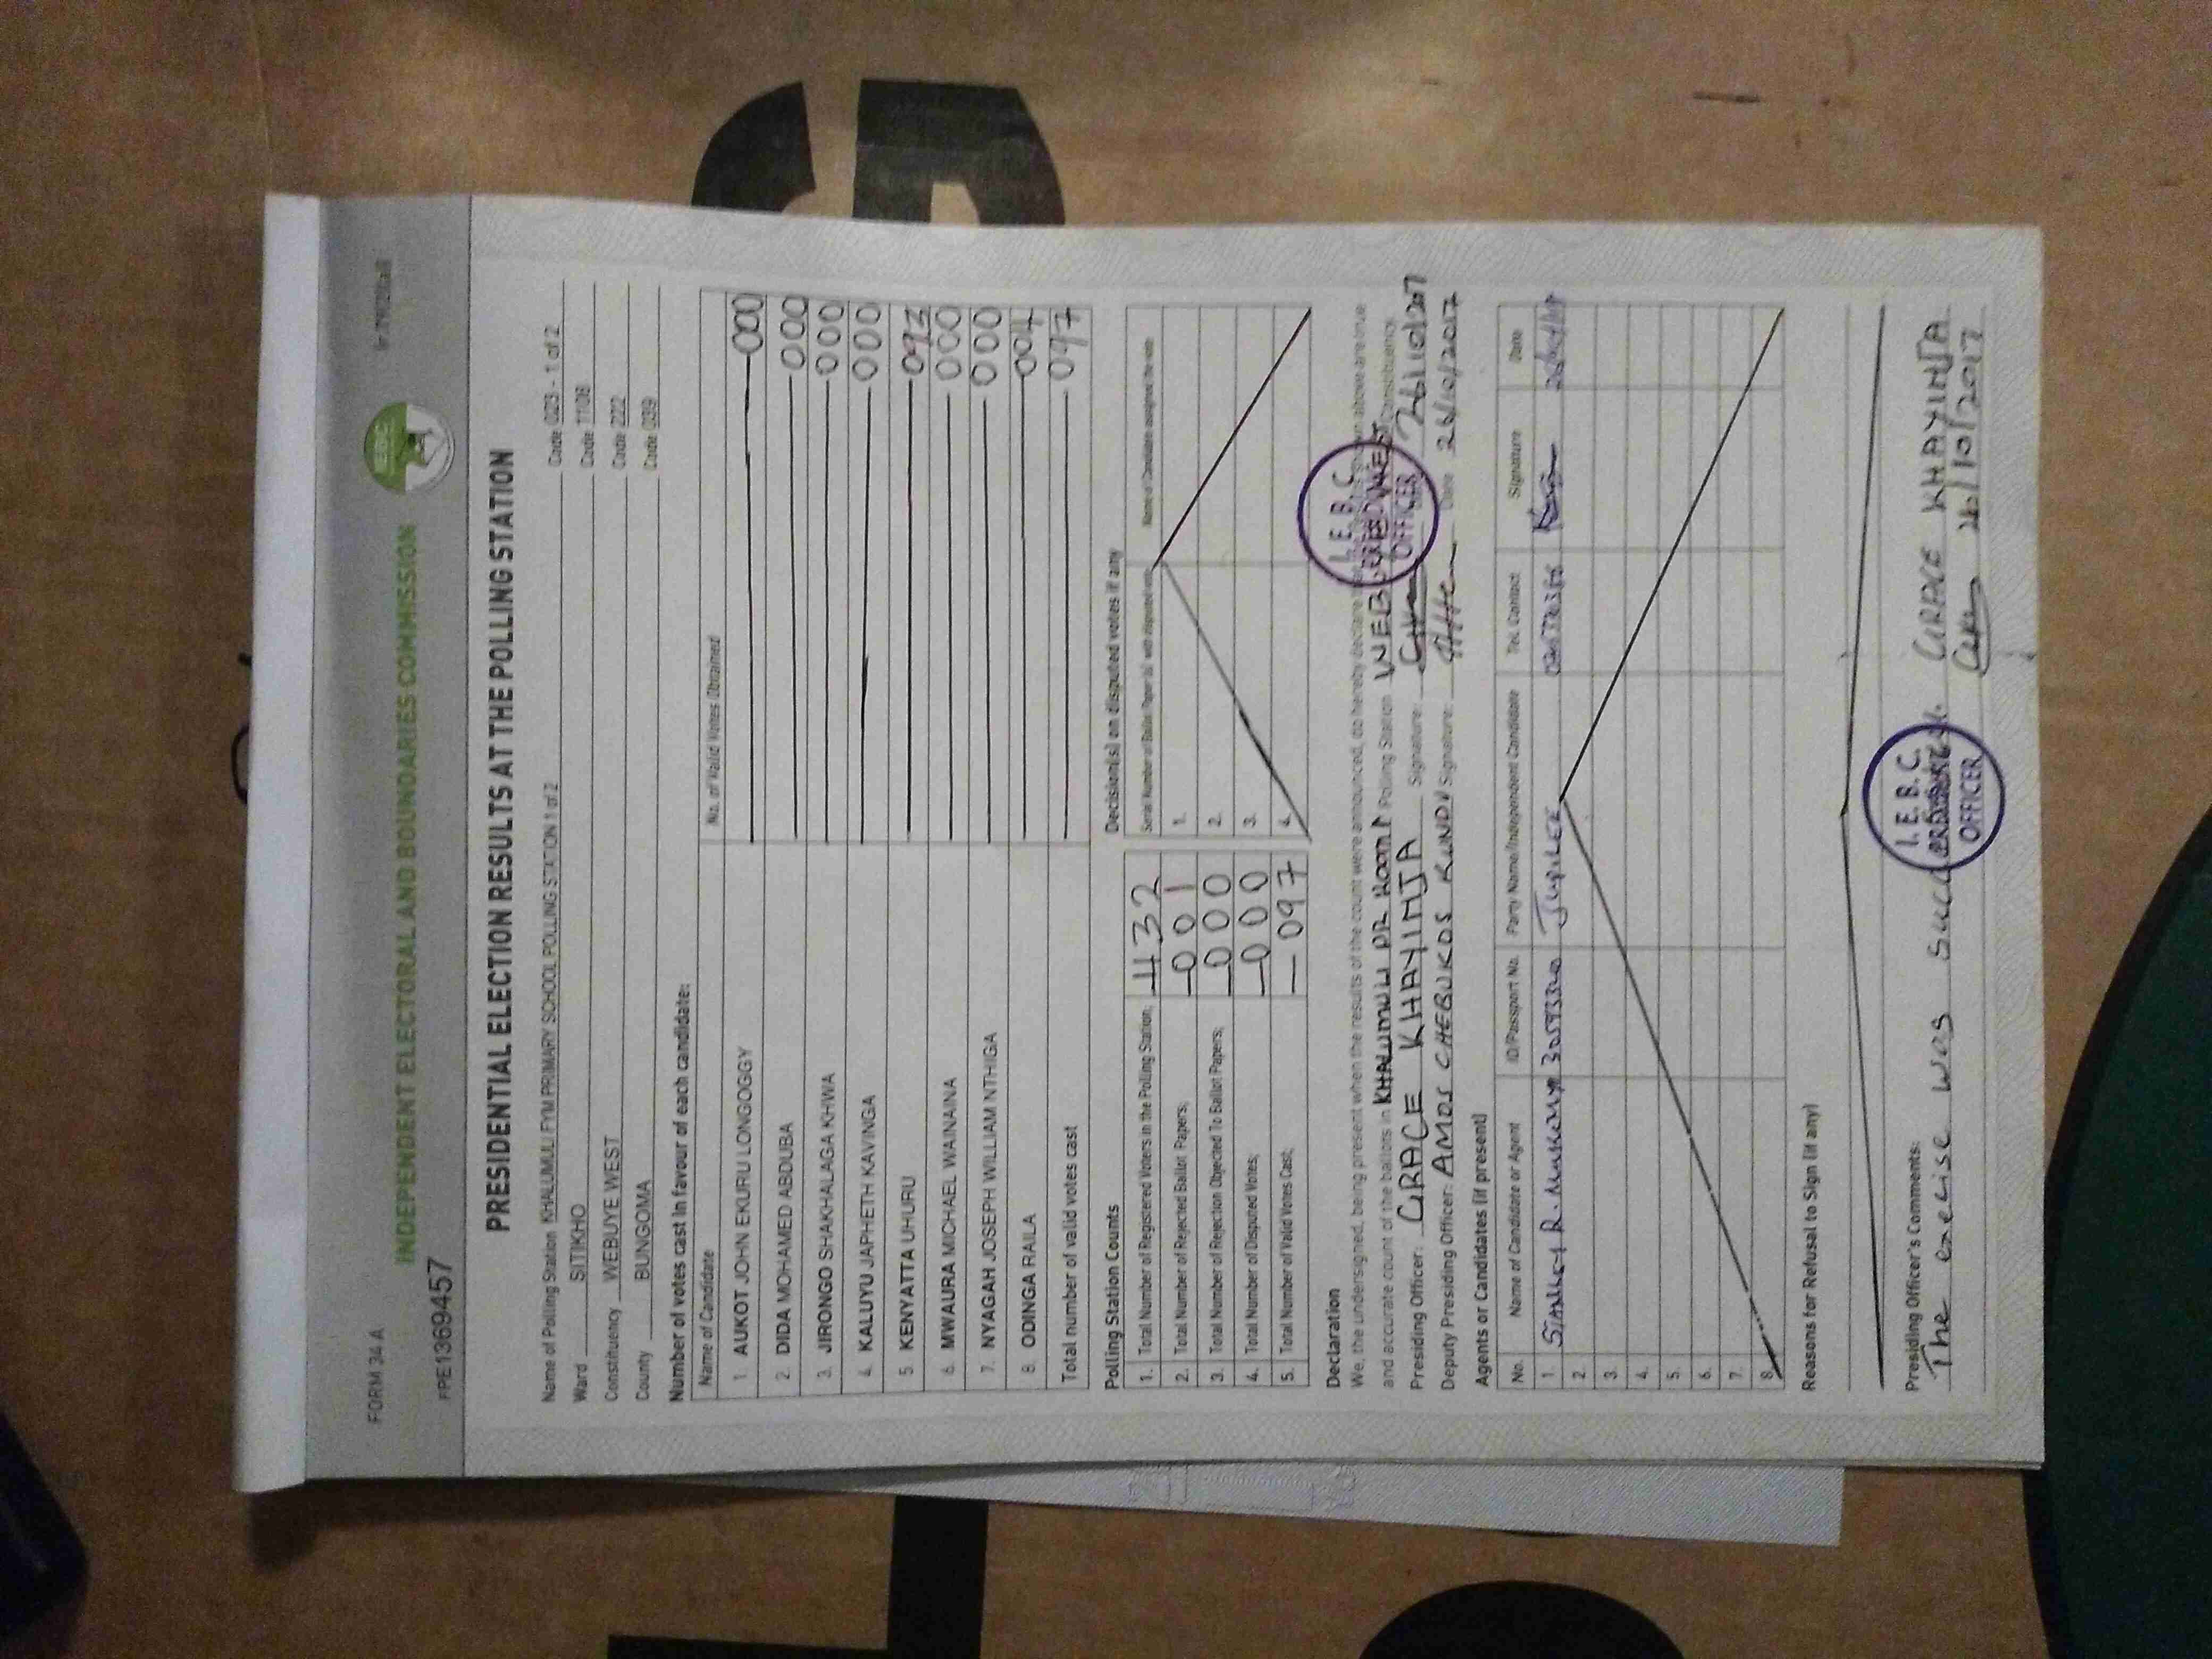 FORM 34A
INDEPENDENT ELECTORAL AND BOUNDARIES COMMISSION
IEBC
FPE1369457
PRESIDENTIAL ELECTION RESULTS AT THE POLLING STATION
Name of Polling Station KHALUMULI FYM PRIMARY SCHOOL POLLING STATION 1 of 2 Code 023 - 1 of 2
Ward SITIKHO Code 1108
Constituency WEBUYE WEST Code 222
County BUNGOMA Code 039
Number of votes cast in favour of each candidate:
Name of Candidate No. of Valid Votes Obtained
1. AUKOT JOHN EKURU LONGOGGY 000
2. DIDA MOHAMED ABDUBA 000
3. JIRONGO SHAKHALAGA KHWA 000
4. KALUYU JAPHETH KAVINGA 000
5. KENYATTA UHURU 093
6. MWAURA MICHAEL WAINAINA 000
7. NYAGAH JOSEPH WILLIAM NTHIGA 000
8. ODINGA RAILA 004
Total number of valid votes cast 097
Polling Station Counts Decision(s) on disputed votes if any
1. Total Number of Registered Voters in the Polling Station; 432
2. Total Number of Rejected Ballot Papers; 001
3. Total Number of Rejection Objected To Ballot Papers; 000
4. Total Number of Disputed Votes; 000
5. Total Number of Valid Votes Cast; 097
Serial Number of Ballot Paper (s) with disputed vote Name of Candidate assigned the vote
1.
2.
3.
4.
Declaration
We, the undersigned, being present when the results of the count were announced, do hereby declare shown above are true
and accurate count of the ballots in KHALUMULI PR ROOM 1 Polling Station WEBUYE WEST Constituency.
Presiding Officer: GRACE KHAYINJA Signature: 26/10/2017
Deputy Presiding Officer: AMOS CHEBUKOS KUNDU Signature: Date 26/10/2017
I.E.B.C.
OFFICER
Agents or Candidates (if present)
No. Name of Candidate or Agent ID/Passport No. Party Name/Independent Candidate Tel. Contact Signature Date
1. R. 30593340 JUBILEE
2.
3.
4.
5.
6.
7.
8.
Reasons for Refusal to Sign (if any)
Presiding Officer's Comments:
The exercise was GRACE KHAYINJA
26/10/2017
I.E.B.C.
OFFICER